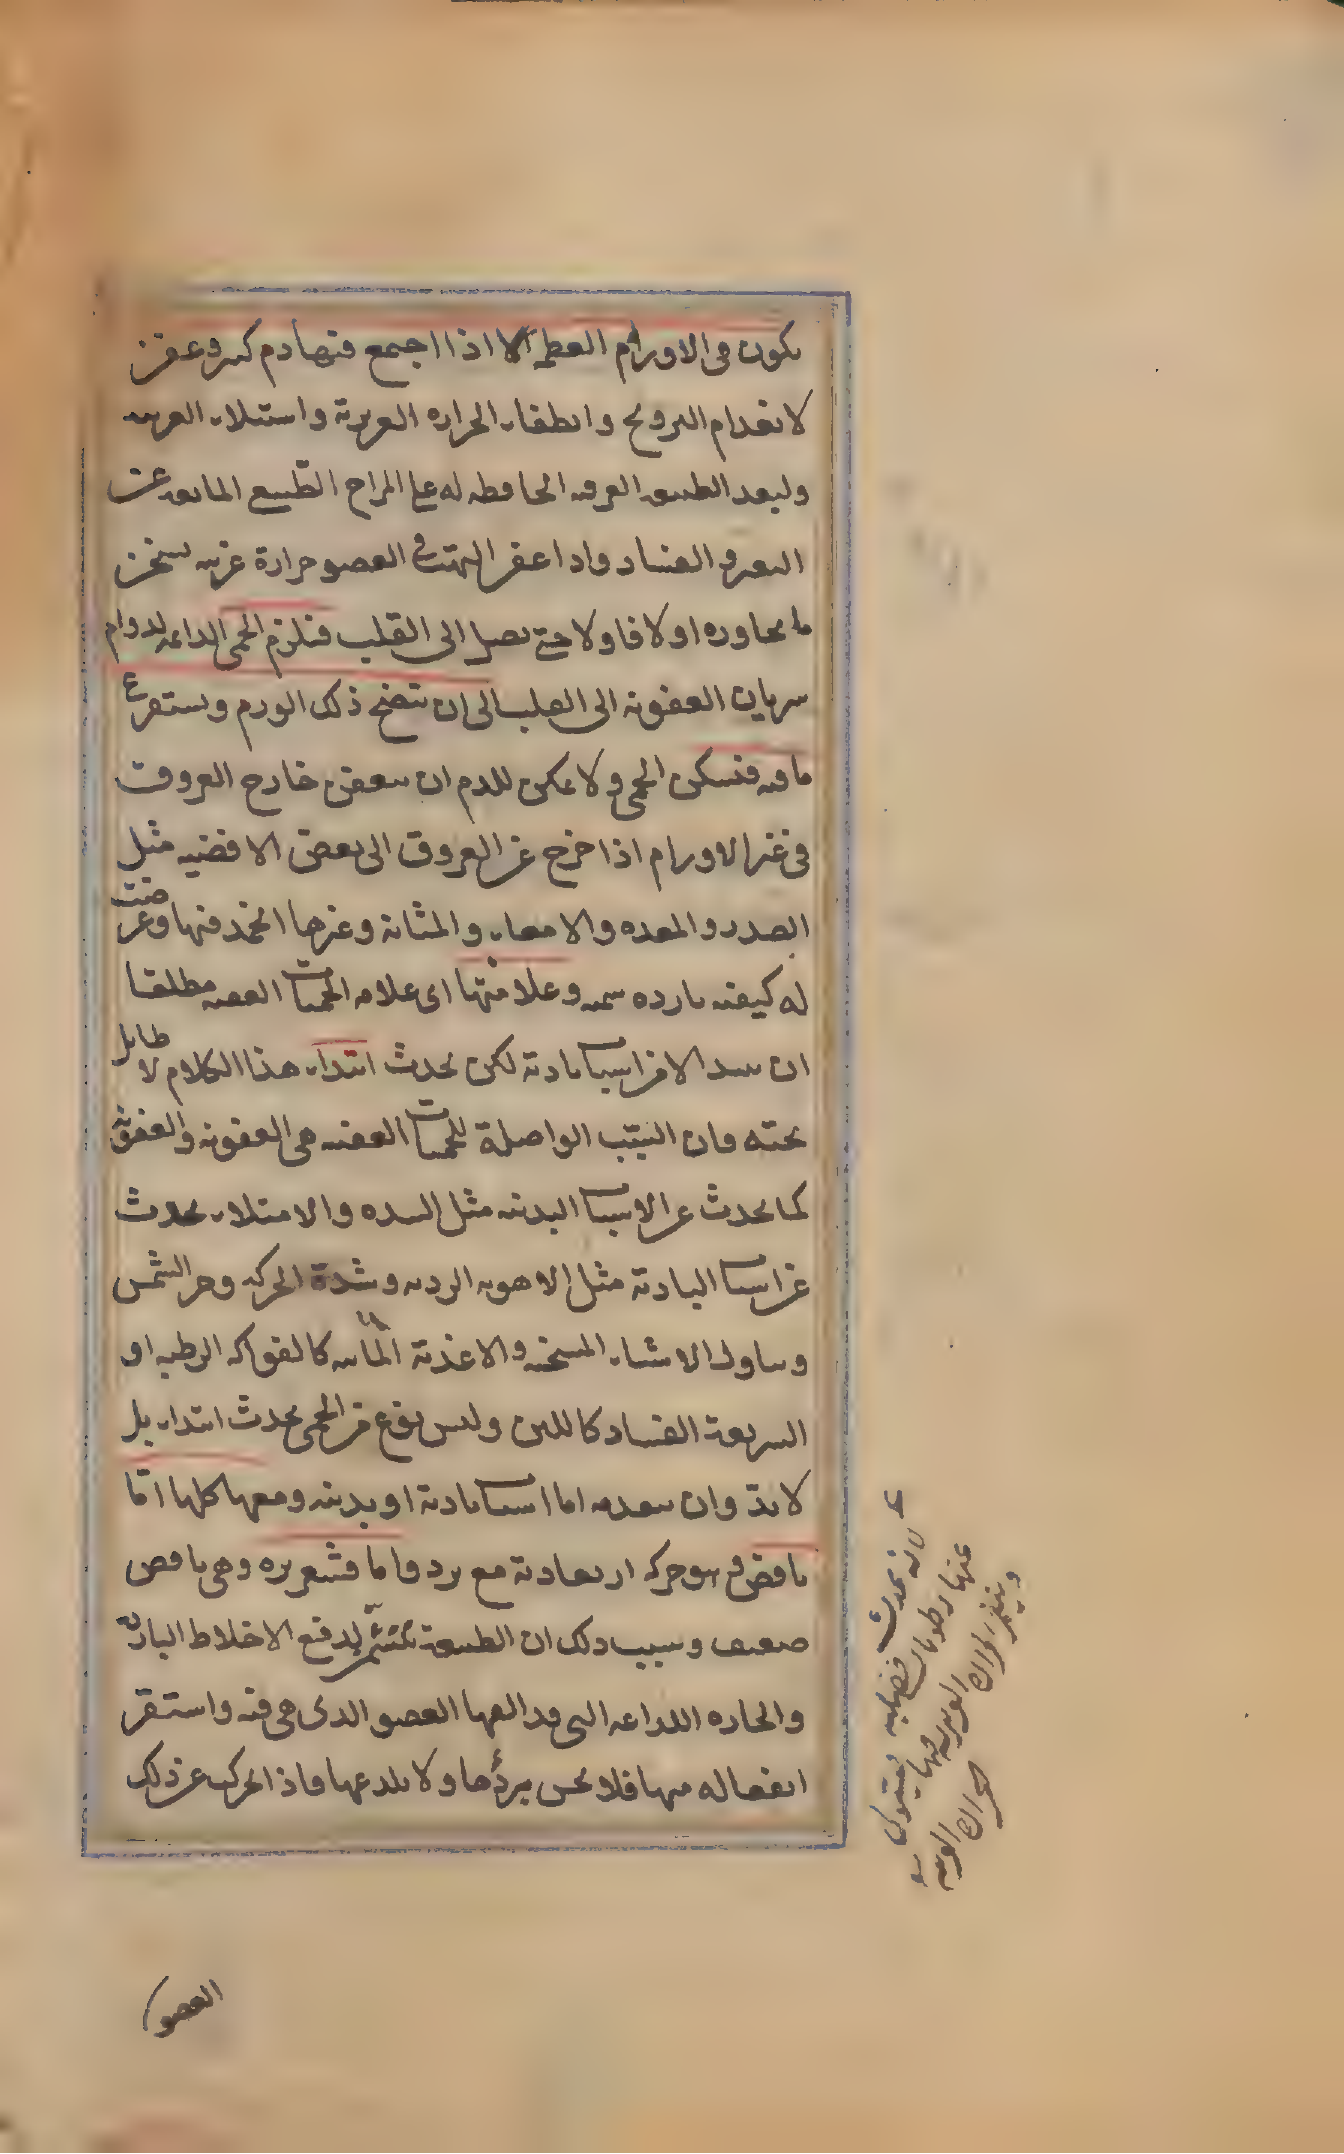 يكون فى الاورام العظيمة الا اذا اجتمع فيها دم كثير وعفن
لانعدام الترويح وانطفاء الحرارة الغريزية واستيلاء الغريبة
ولبعد الطبيعة العرقية الحافظة له على المزاج الطبيعى المانعة عن
التعفن والفساد واذا عفن التهبت فى العضو حرارة غريبة يسخن
ما يجاوره اولا فاولا حتى يصل الى القلب فيلزم الحمى الدائمة لدوام
سريان العفونة الى القلب الى ان ينضج ذلك الورم ويستفرغ
ما فيه فيسكن الحمى ولا يمكن للدم ان يتعفن خارج العروق
فى غير الاورام اذا خرج عن العروق الى بعض الافضية مثل
الصدر والمعدة والامعاء والمثانة وغيرها انجمد فيها وعرضت
له كيفية باردة سمية وعلامتها اى علامة الحميات العفنية مطلقا
ان يبتدا لا من اسباب بادية لكن يحدث ابتداء هذا الكلام لا طايل
تحته فان السبب الواصلة للحميات العفنية هى العفونة والعفونة
كما يحدث عن الاسباب البدنية مثل السدة والامتلاء يحدث
عن اسباب البادية مثل الاهوية الردية وشدة الحركة وحر الشمس
وتناول الاشياء المسخنة والاغذية المائية كالفواكه الرطبة او
السريعة الفساد كاللبن وليس نوع من الحمى يحدث ابتداء بل
لابد وان يتقدمه اما اسباب بادية او بدنية ومعها كلها اما
نافض وهو حركة ارتعادية مع برد واما قشعريرة وهى نافض
ضعيف وسبب ذلك ان الطبيعة تتشمر لدفع الاخلاط الباردة
والحارة اللذاعة التى قد الفها العضو الذى هى فيه واستقر
انفعاله منها فلا يحس ببردها ولا بلذعها فاذا تحركت عن ذلك
لانه تحدث
عنها رطوبات فضلية
العضو